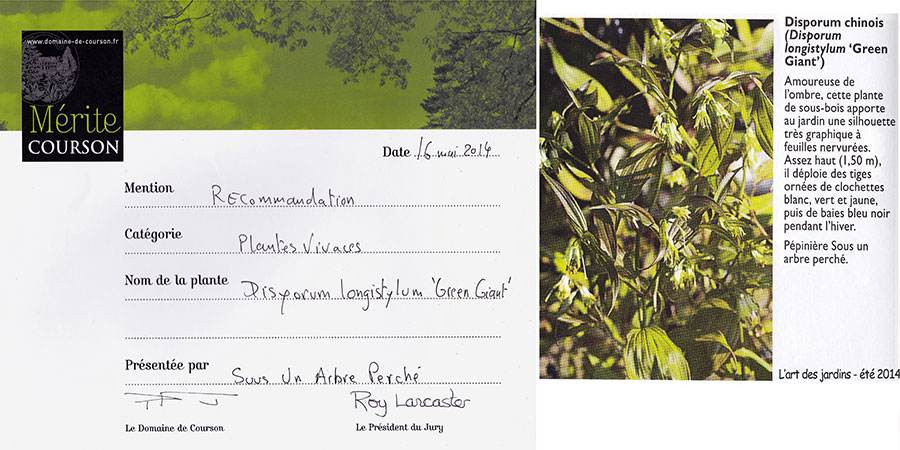 www.domaine-de-courson.fr
Mérite
COURSON
Date 16 mai 2014
Mention Recommandation
Catégorie Plantes Vivaces
Nom de la plante Disporum longistylum 'Green Giant'
Présentée par Sous Un Arbre Perché
Roy Lancaster
Le Domaine de Courson
Le Président du Jury
Disporum chinois
(Disporum
longistylum ‘Green
Giant’)
Amoureuse de
l’ombre, cette plante
de sous-bois apporte
au jardin une silhouette
très graphique à
feuilles nervurées.
Assez haut (1,50 m),
il déploie des tiges
ornées de clochettes
blanc, vert et jaune,
puis de baies bleu noir
pendant l’hiver.
Pépinière Sous un
arbre perché.
L'art des jardins - été 2014